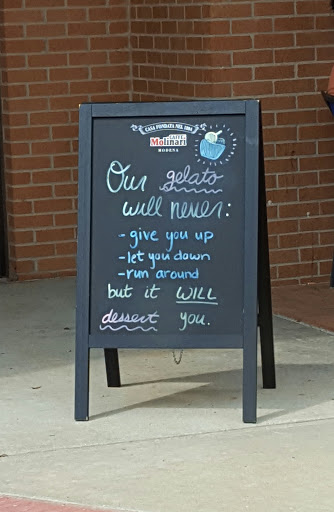 CASA FONDATA NEL 1804
CAFFÈ
Molinari
MODENA
Our gelato
will never:
- give you up
- let you down
- run around
but it WILL
dessert you.